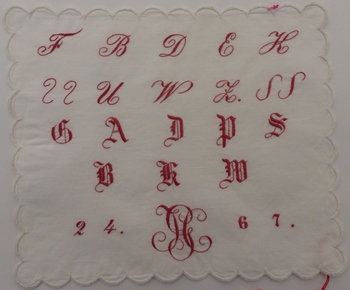 F B D E H
U W Z.
G A D P S
B K W
2 4. 6 7.